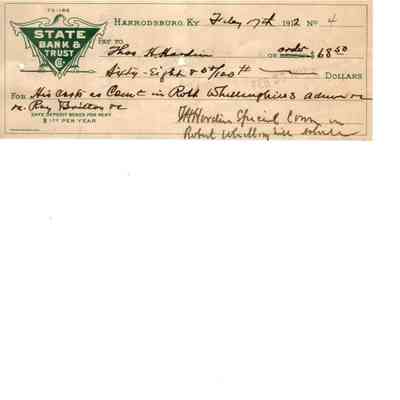 73-186
STATE
BANK &
TRUST
Co
HARRODSBURG, KY Feby 7th 1912 No 4
PAY TO
Thos H. Hardin OR order $68 50
Sixty-Eight & 50/100 DOLLARS
FOR His costs as Comr in Robt admr vc
vc. Roy vc
SAFE DEPOSIT BOXES FOR RENT
$1.00 PER YEAR
Hardin Special Comr in
Robert